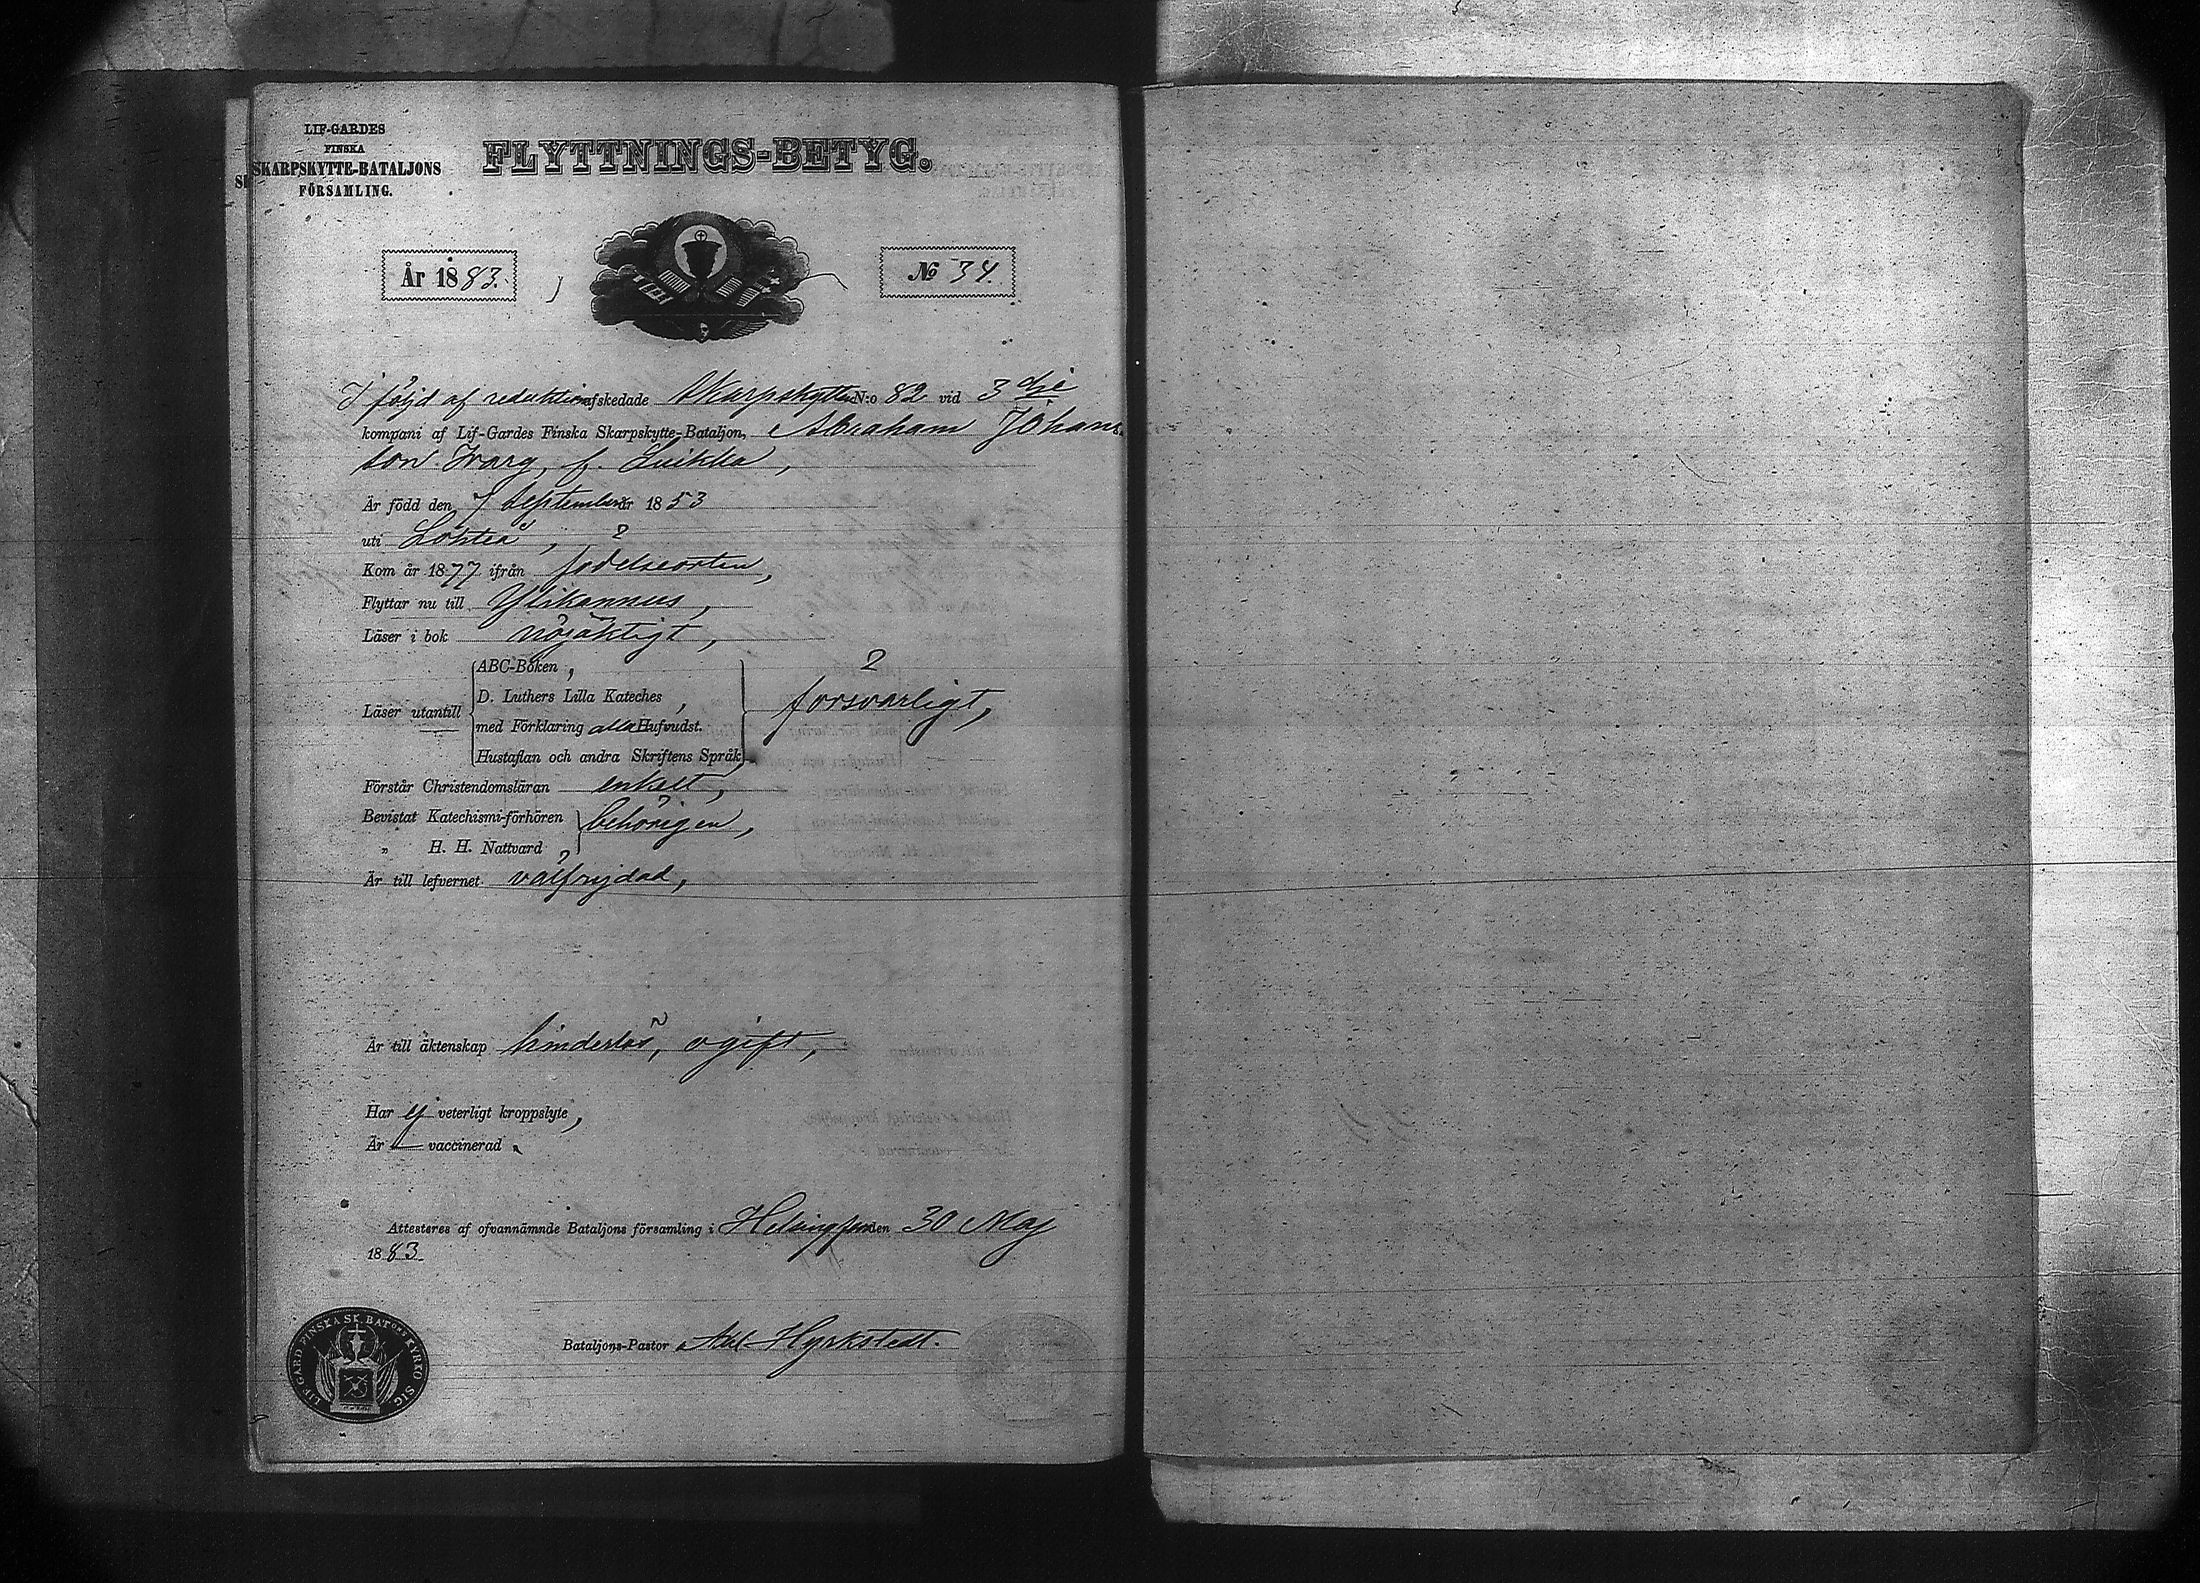 LIF-GARDES
FINSKA
SKARPSKYTTE-BATALJONS
FÖRSAMLING.
FLYTTNINGS-BETYG.
År 1883.
No 34.
I följd af reduktion afskedade Skarpskytten N:o 82 vid 3dje
kompani af Lif-Gardes Finska Skarpskytte-Bataljon, Abraham Johans-
son Svarg, f. Luikka,
Är född den 7 September år 1853
uti Lohteå,
Kom år 1877 ifrån födelseorten,
Flyttar nu till Ylikannus,
Läser i bok nöjaktigt,
ABC-Boken,
D. Luthers Lilla Kateches,
Läser utantill
försvarligt,
med Förklaring alla Hufvudst.
Hustaflan och andra Skriftens Språk
Förstår Christendomsläran enkelt,
Bevistat Katechismi-förhören behörigen,
„ H. H. Nattvard,
Är till lefvernet välfrejdad,
Är till äktenskap hinderlös, ogift,
Har ej veterligt kroppslyte,
Är — vaccinerad.
Attesteras af ofvannämnde Bataljons församling i Helsingfors den 30 Maj
1883.
Bataljons-Pastor Axel Hyrkstedt.
LIF. GARD. FINSKA SK. BATONS KYRKO SIG.